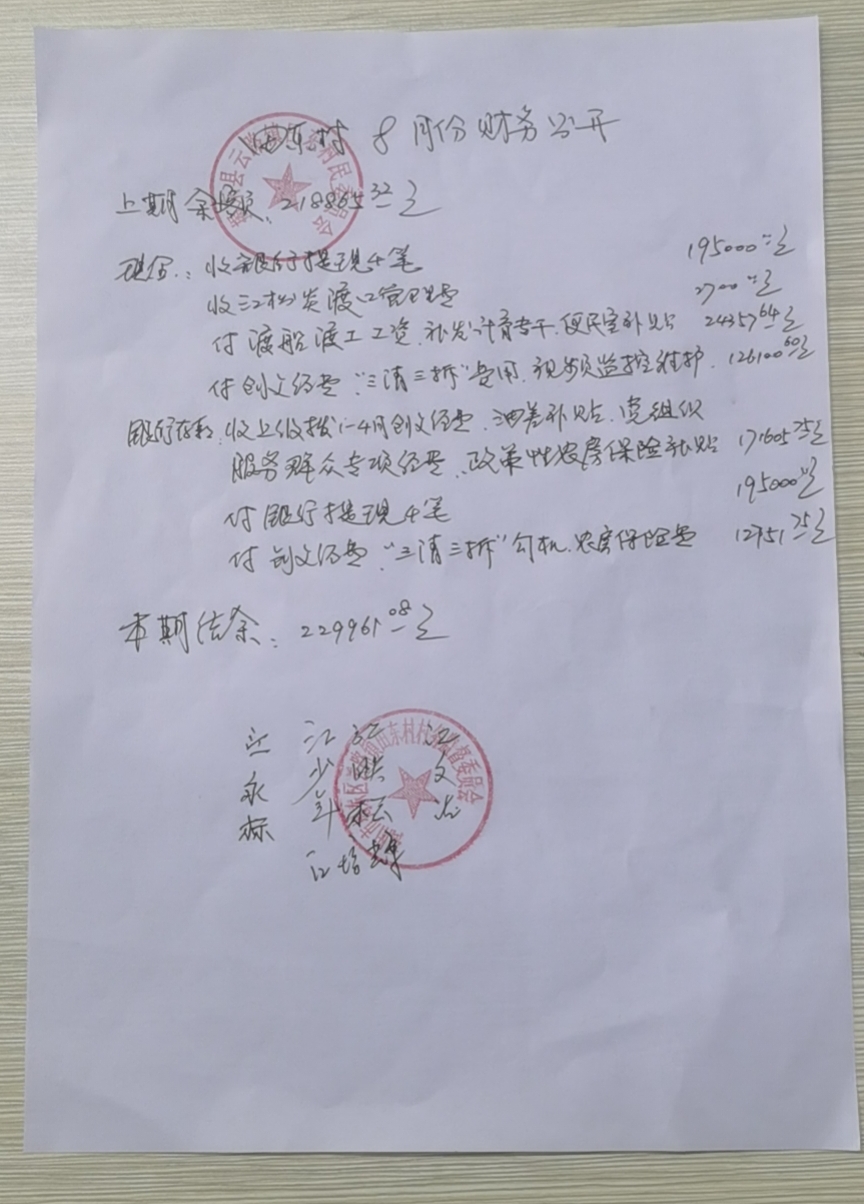 田东村 8月份财务公开
上期余额：218865.32元
现金：收银行提现4笔 195000.00元
收三江松炎渡口管理费 2700.00元
付渡船渡工工资、补发计育专干、便民室补贴 24357.64元
付创文经费、“三清三拆”费用、视频监控维护 126100.60元
银行存款：收上级拨1-4月创文经费、油差补贴、党组织
服务群众专项经费、政策性农房保险补贴 171605.75元
付银行提现4笔 195000.00元
付创文经费、“三清三拆”勾机、农房保险费 12751.75元
本期结余：229961.08元
江永标
江文志
江培辉
东村村务监督委员会